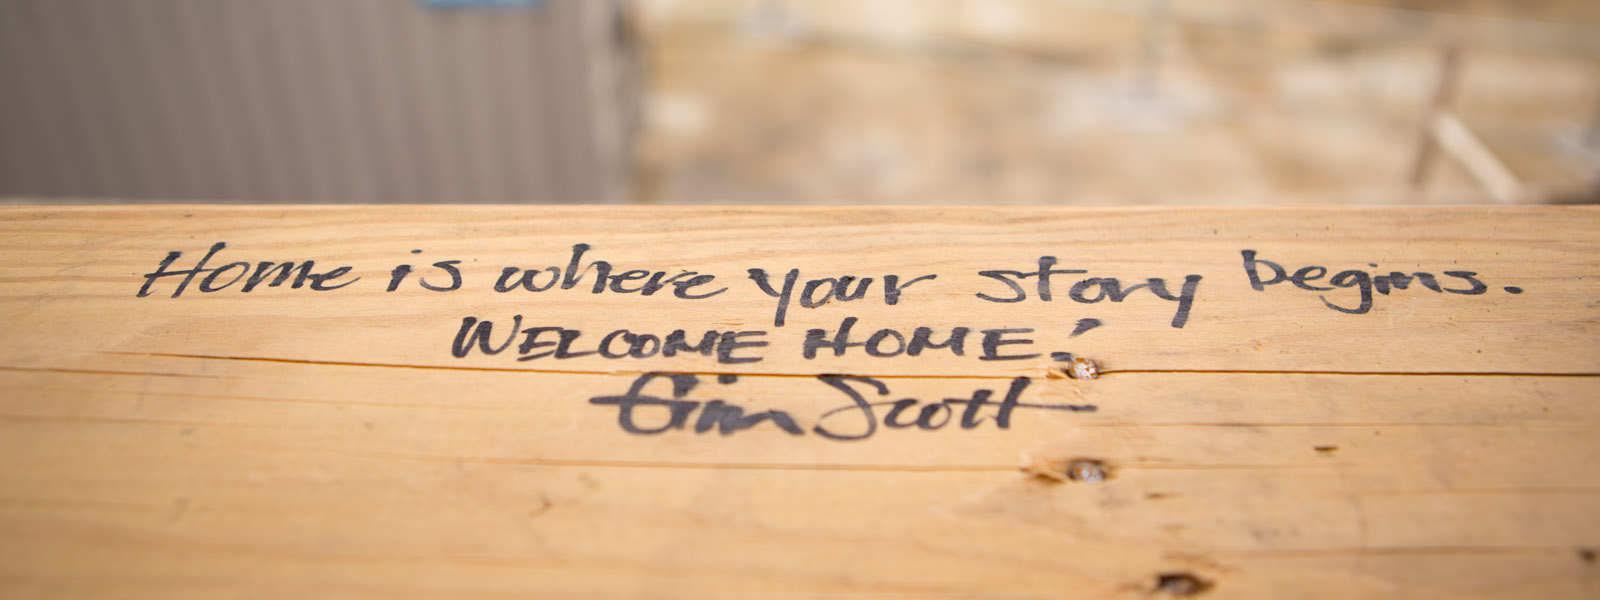 Home is where your story begins.
WELCOME HOME!
Scott